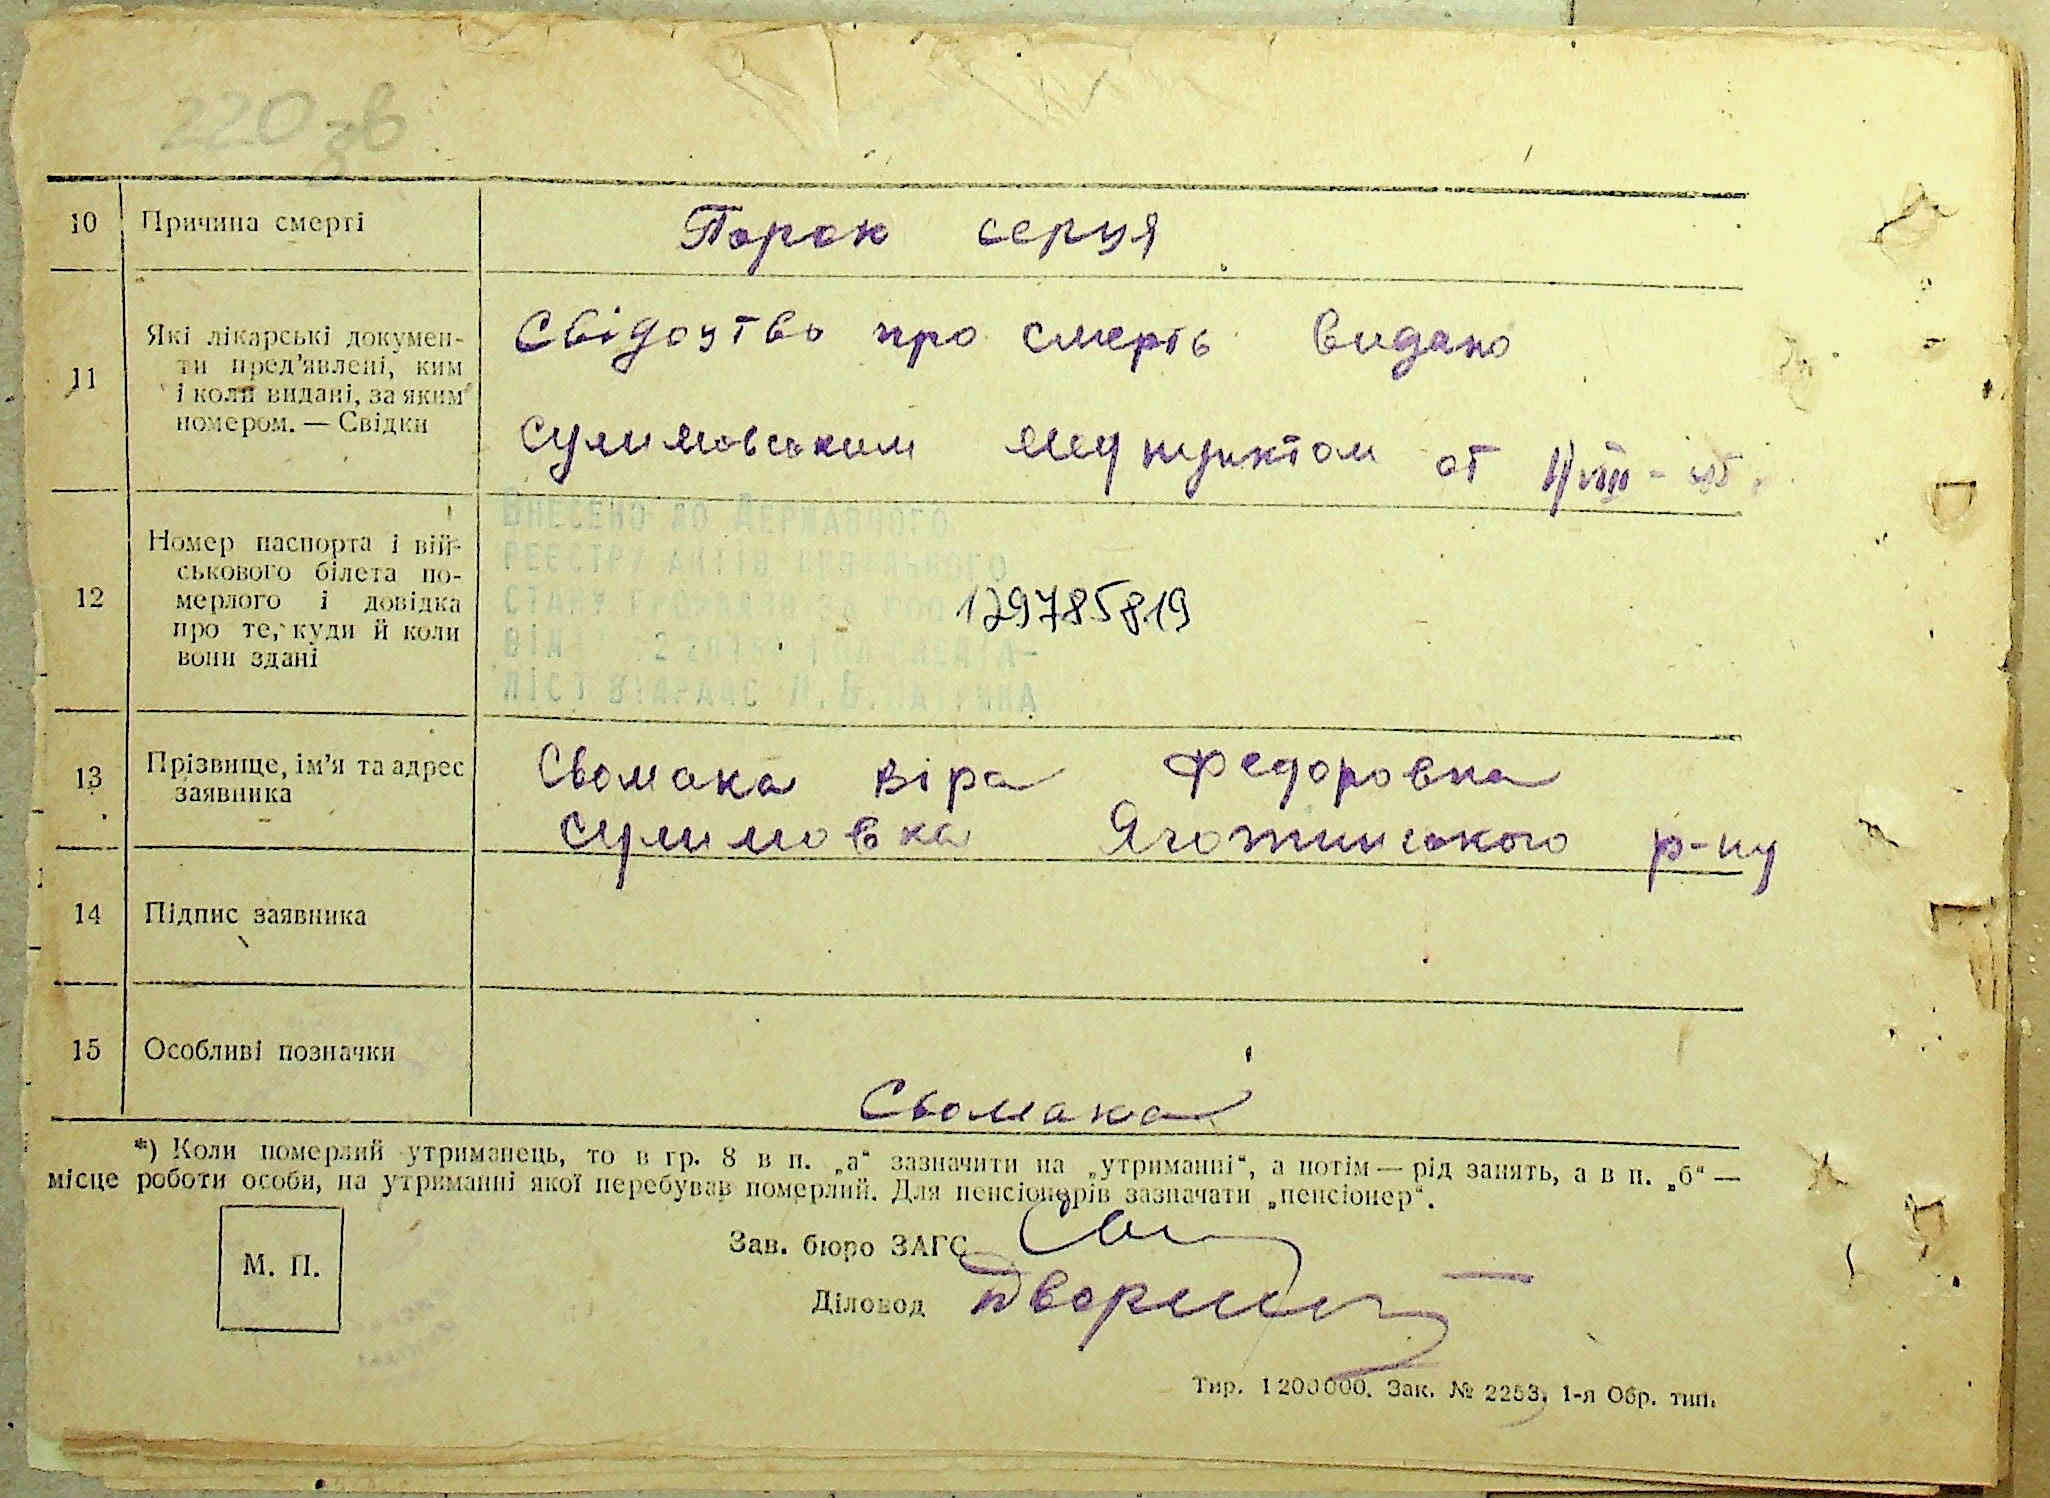 220 зв
10 Причина смерті Порок серця
11 Які лікарські докумен-
ти пред'явлені, ким
і коли видані, за яким
номером. — Свідки
Свідоцтво про смерть видано
Сулимовським медпунктом от
12 Номер паспорта і вій-
ськового білета по-
мерлого і довідка
про те, куди й коли
вони здані
Внесено до Державного
реєстру актів цивільного
стану громадян
129785819
13 Прізвище, ім'я та адрес
заявника
Сьомака Віра Федоровна
Сулимовка Яготинського р-ну
14 Підпис заявника
15 Особливі позначки
Сьомака
*) Коли померлий утриманець, то в гр. 8 в п. „а“ зазначити на „утриманні“, а потім — рід занять, а в п. „б“ —
місце роботи особи, на утриманні якої перебував померлий. Для пенсіонерів зазначати „пенсіонер“.
М. П.
Зав. бюро ЗАГС
Діловод
Тир. 1200000. Зак. № 2253. 1-я Обр. тип.